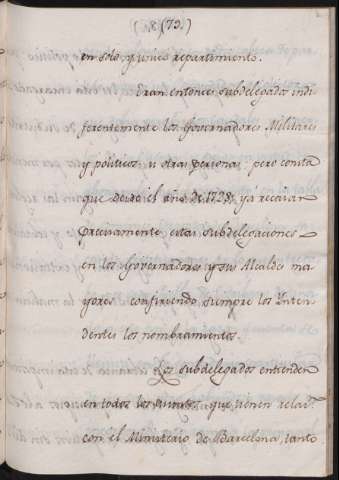 (8(73.)
en solo, y unico repartimiento.
Eran entonces subdelegados indi
ferentemente los Governadores Militares
y politicos, u otras personas, pero consta
que desde el año de 1728, ya recaian
precisamente estas subdelegaciones
en los Governadores y sus Alcaldes ma
yores confiriendo siempre los Inten
dentes los nombramientos.
Los subdelegados entienden
en todos los que tienen relac.n
con el Ministerio de Barcelona, tanto